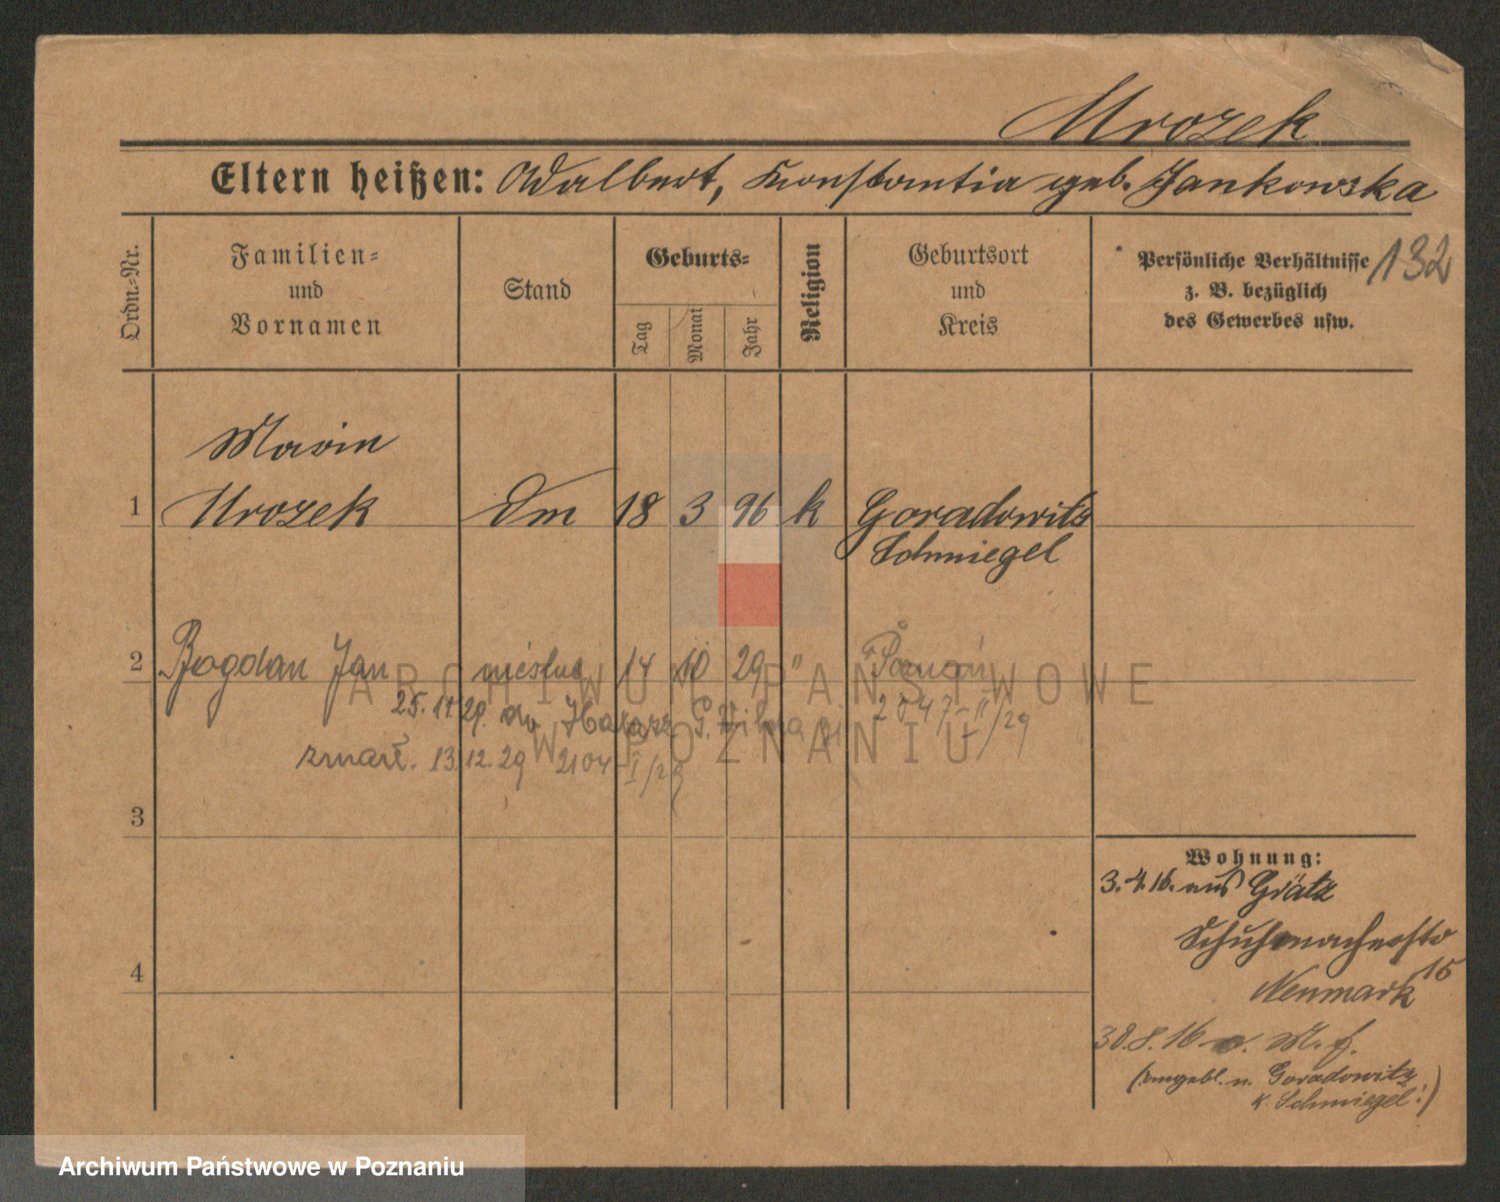 Mrozek
Eltern heißen: Adalbert, Konstantia geb. Jankowska
132
Ordn.-Nr.
Familien-
und
Vornamen
Stand
Geburts-
Tag
Monat
Jahr
Religion
Geburtsort
und
Kreis
Persönliche Verhältnisse
z. B. bezüglich
des Gewerbes usw.
Marie
1 Mrozek Dm 18 3 96 k Goradowitz
Schmiegel
2 Bogdan Jan 14 10 29 " Poznań
25.11.29. do G. Wilna 2047 II/29
zmarł. 13.12.29 2104 I/29
3
4
Wohnung:
3.4.16. aus Grätz
Schuhmacherstr
15
Neumark
30.8.16 M. f.
(angebl. n. Goradowitz
k. Schmiegel!)
ARCHIWUM PAŃSTWOWE
W POZNANIU
Archiwum Państwowe w Poznaniu